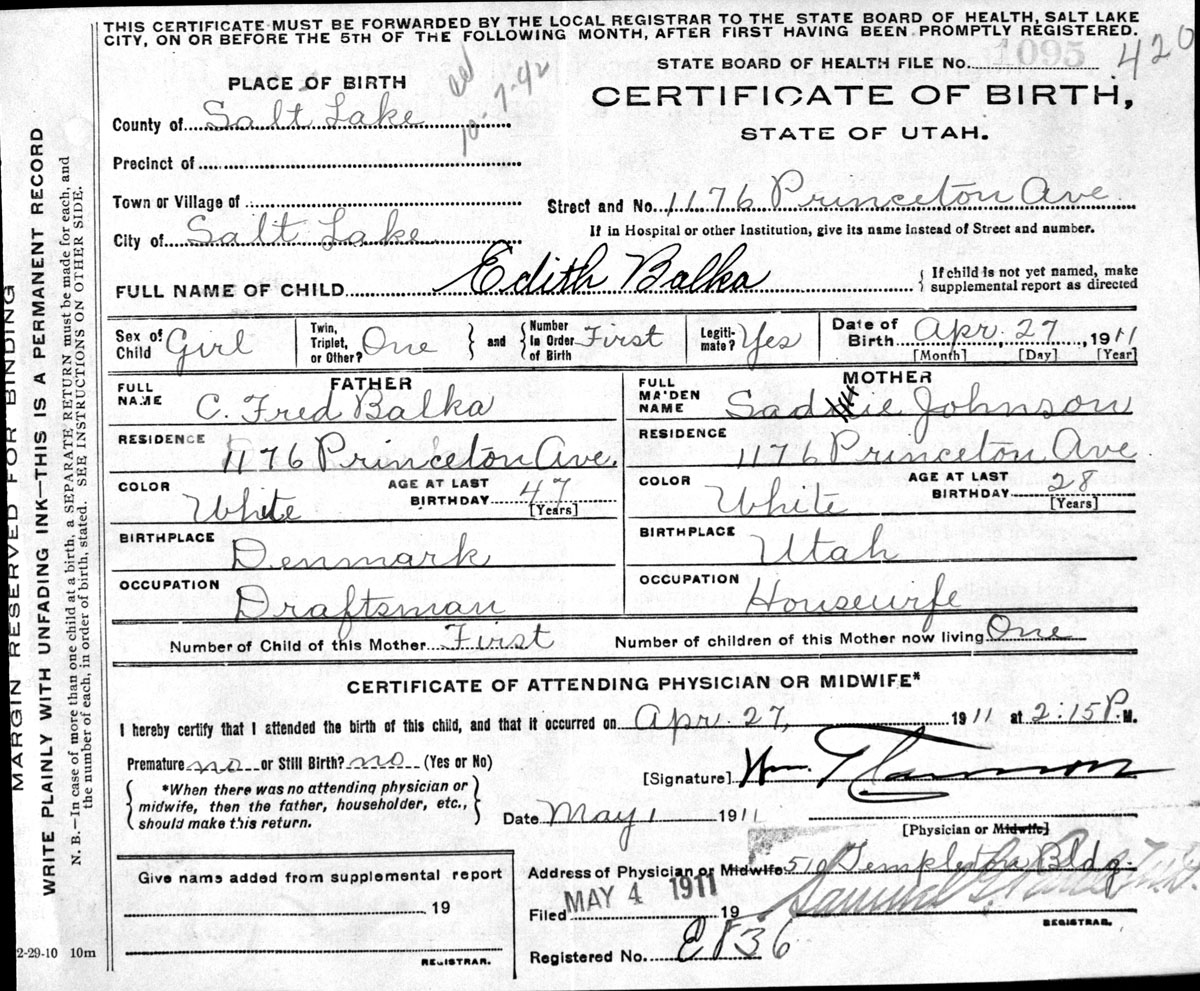 THIS CERTIFICATE MUST BE FORWARDED BY THE LOCAL REGISTRAR TO THE STATE BOARD OF HEALTH, SALT LAKE
CITY, ON OR BEFORE THE 5TH OF THE FOLLOWING MONTH, AFTER FIRST HAVING BEEN PROMPTLY REGISTERED.
STATE BOARD OF HEALTH FILE No. 1095 420
PLACE OF BIRTH
CERTIFICATE OF BIRTH,
STATE OF UTAH.
County of Salt Lake
Precinct of
Town or Village of
Street and No. 1176 Princeton Ave.
City of Salt Lake
If in Hospital or other Institution, give its name instead of Street and number.
FULL NAME OF CHILD Edith Balka
If child is not yet named, make
supplemental report as directed
Sex of Child Girl
Twin, Triplet, or Other? One
and Number in Order of Birth First
Legiti-mate? Yes
Date of Birth Apr. 27, 1911
[Month] [Day] [Year]
FATHER
FULL NAME C. Fred Balka
RESIDENCE 1176 Princeton Ave.
COLOR White AGE AT LAST BIRTHDAY 47 [Years]
BIRTHPLACE Denmark
OCCUPATION Draftsman
MOTHER
FULL MAIDEN NAME Sadie Johnson
RESIDENCE 1176 Princeton Ave
COLOR White AGE AT LAST BIRTHDAY 28 [Years]
BIRTHPLACE Utah
OCCUPATION Housewife
Number of Child of this Mother First Number of children of this Mother now living One
CERTIFICATE OF ATTENDING PHYSICIAN OR MIDWIFE*
I hereby certify that I attended the birth of this child, and that it occurred on Apr. 27, 1911 at 2:15 P. M.
Premature no or Still Birth? no (Yes or No)
[Signature] Wm.
*When there was no attending physician or
midwife, then the father, householder, etc.,
should make this return.
Date May 1 1911
[Physician or Midwife]
Address of Physician or Midwife 510 Templeton Bldg.
Give name added from supplemental report
19
REGISTRAR.
Filed MAY 4 1911 19
Samuel G.
REGISTRAR.
Registered No. E836
2-29-10 10m
MARGIN RESERVED FOR BINDING
WRITE PLAINLY WITH UNFADING INK—THIS IS A PERMANENT RECORD
N. B.—In case of more than one child at a birth, a SEPARATE RETURN must be made for each, and
the number of each, in order of birth, stated. SEE INSTRUCTIONS ON OTHER SIDE.